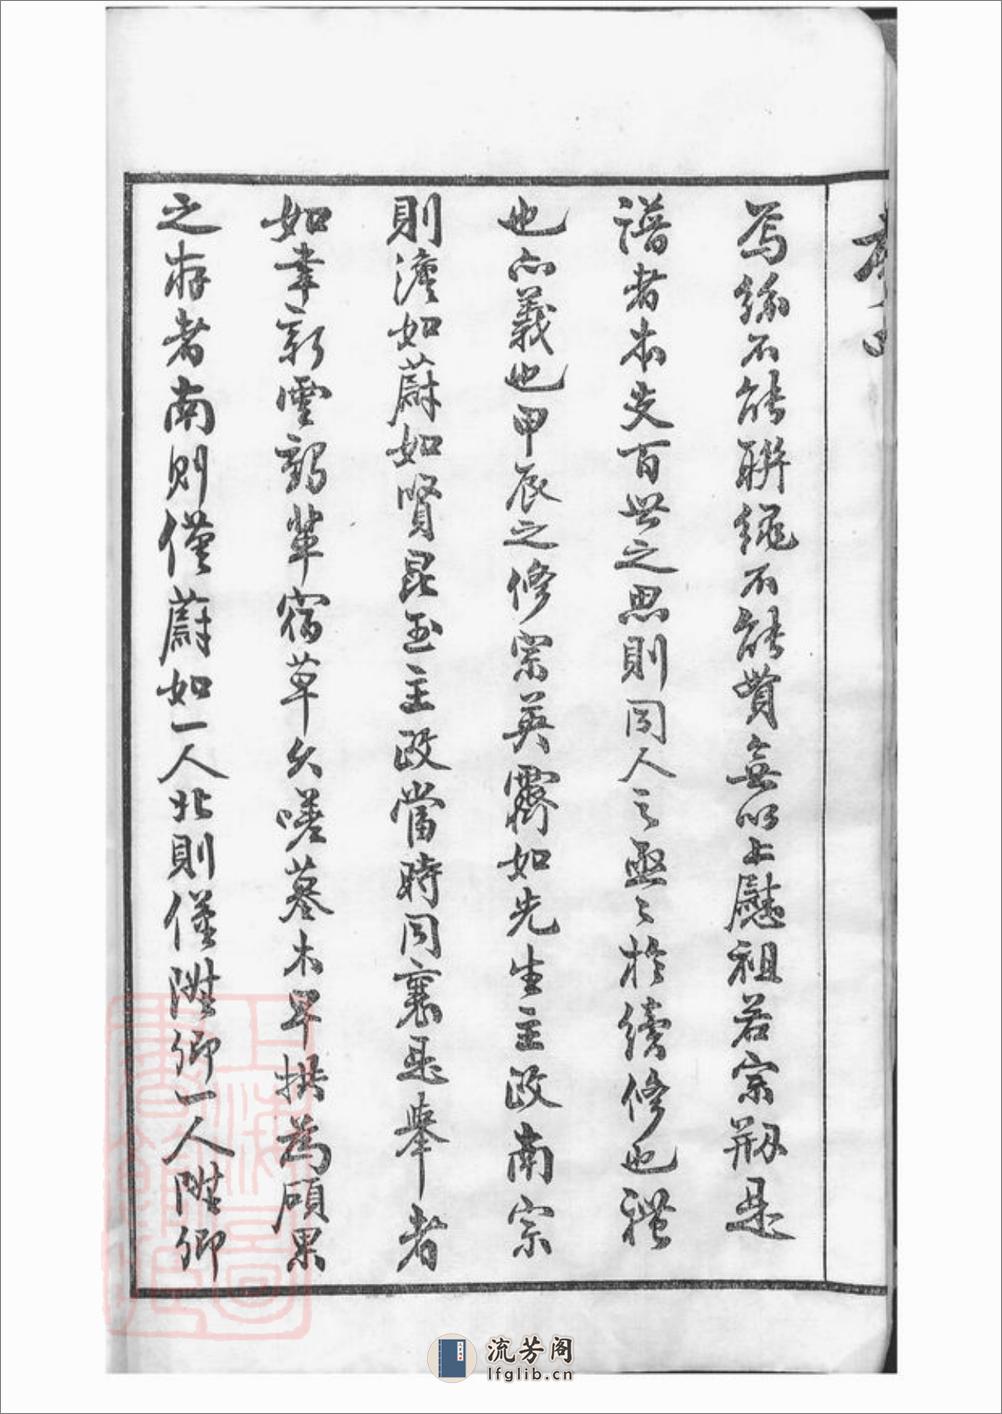 焉綈不能聯繩不能貫無以上慰祖若宗剏是
譜者本支百世之思則同人之亟亟於續修也禮
也亦義也甲辰之修宗英霽如先生主政南宗
則澹如蔚如賢昆玉主政當時同襄是舉者
如聿新雲翹輩宿草久嗟墓木早拱為碩果
之存者南則僅蔚如一人北則僅陞卿一人陞卿
流芳阁
lfglib.cn